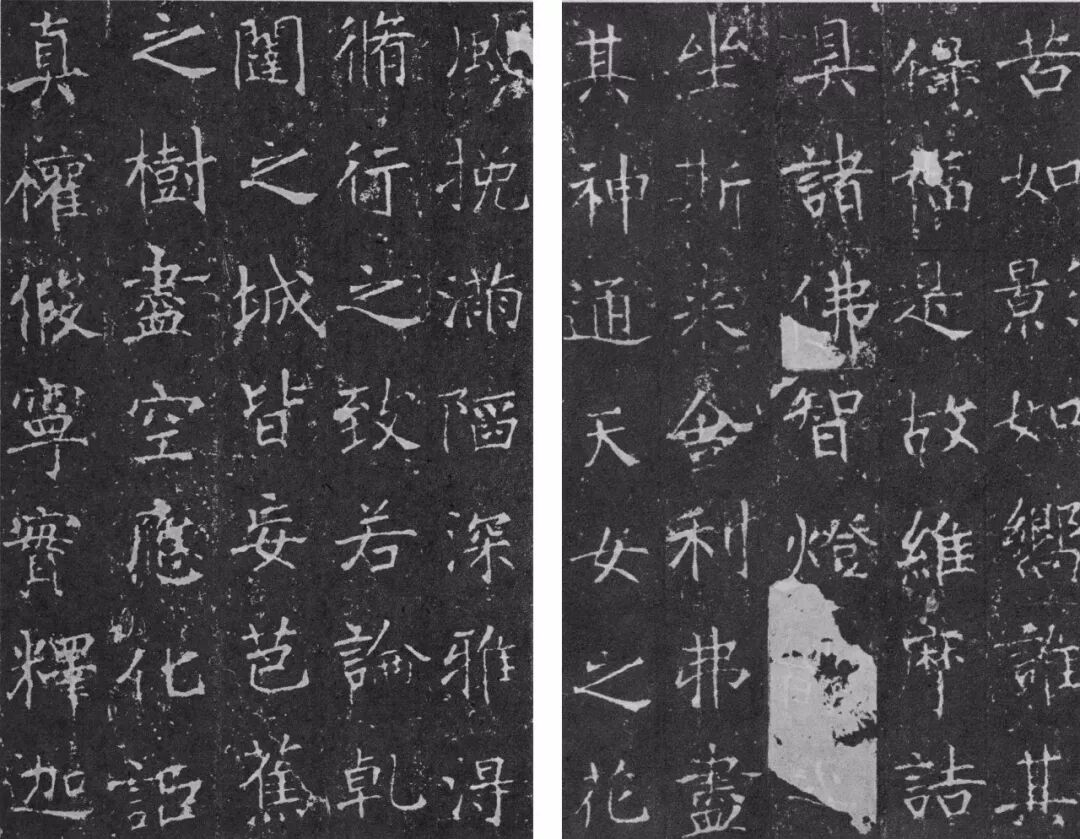 苦如景如嚮誰其
得福是故維摩詰
具諸佛智燈
坐斯舍利弗盡
其神通天女之花
風挽滿陷深雅得
脩行之致若論乾
闥之城皆妄芭蕉
之樹盡空應化詎
真權假寧實釋迦